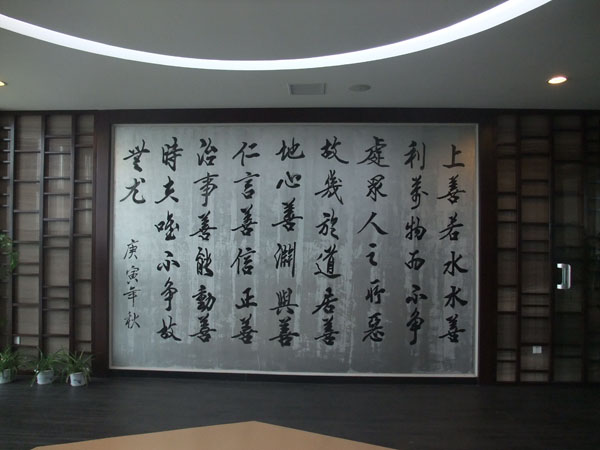 上善若水水善
利萬物而不争
處眾人之所惡
故幾於道居善
地心善淵與善
仁言善信正善
治事善能動善
時夫唯不争故
無尤
庚寅年秋